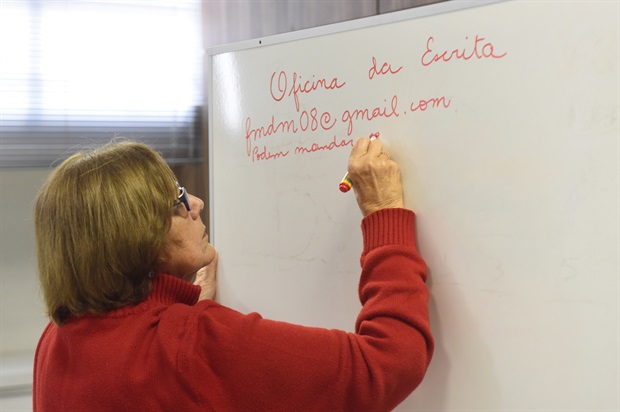 Oficina da Escrita
fmdm08@gmail.com
Podem mandar